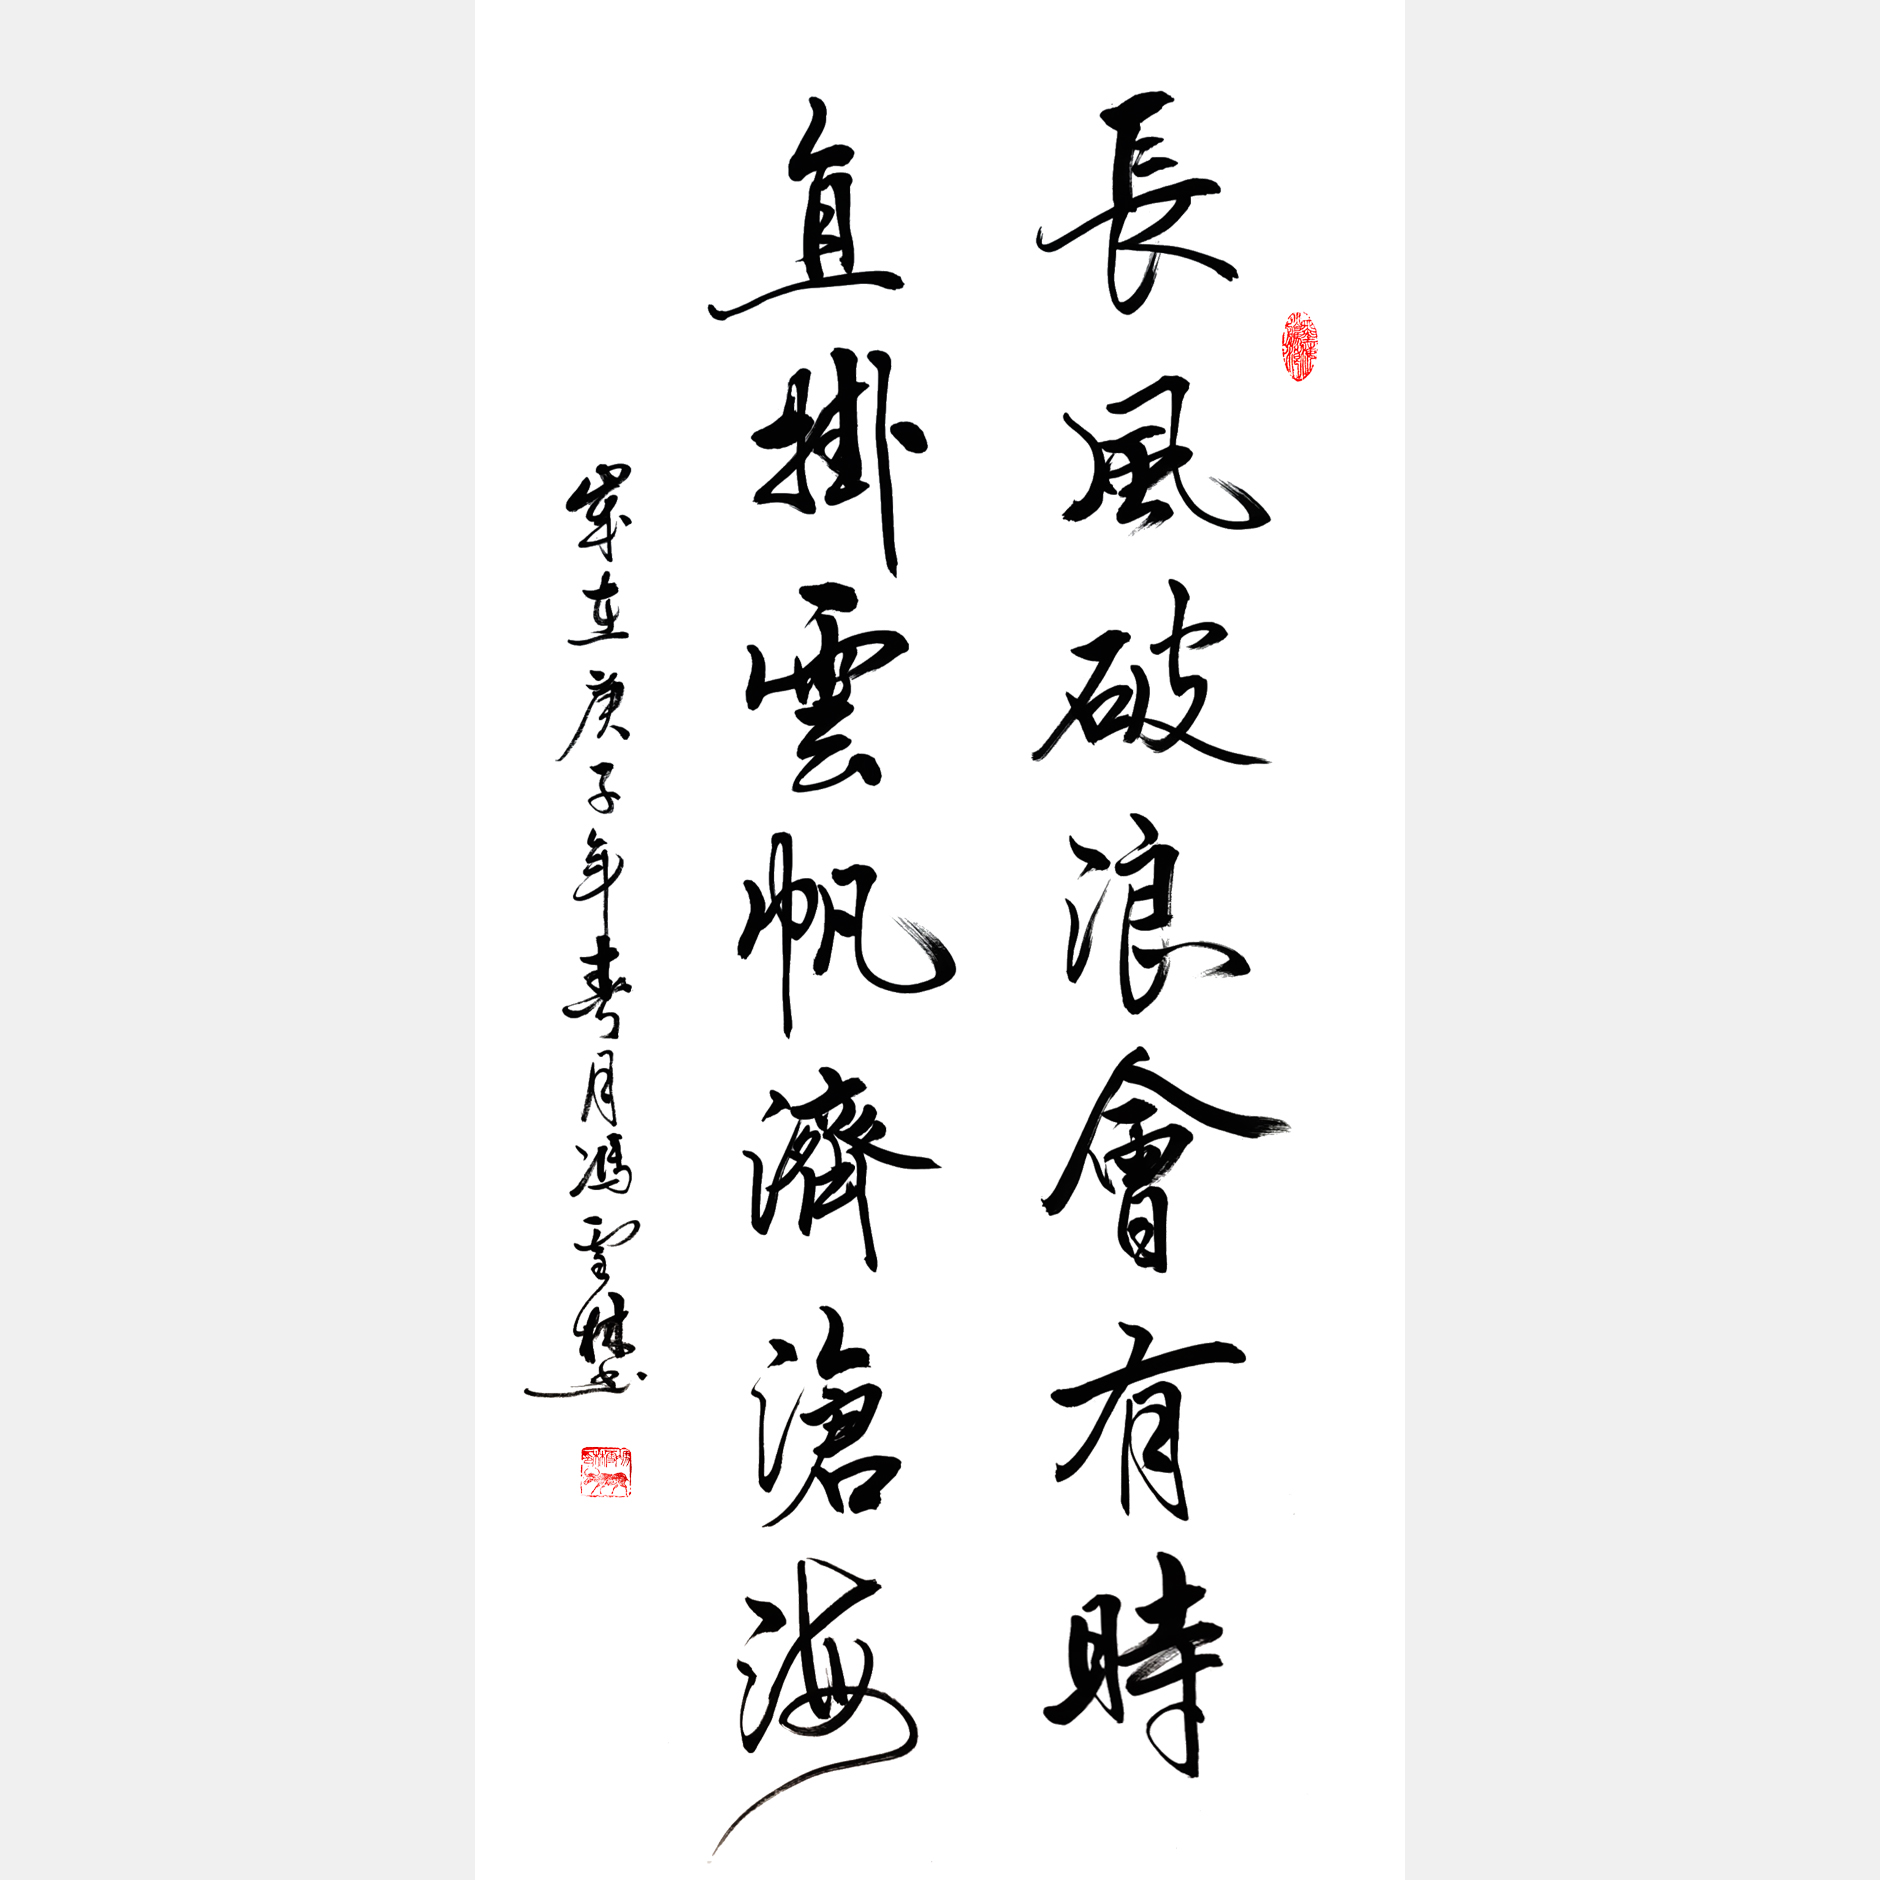 長風破浪會有時
直掛雲帆濟滄海
歲在庚子年春月馮雪林書